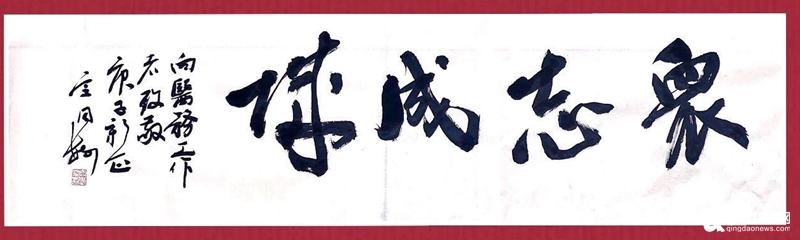 眾志成城
向醫務工作
者致敬
庚子新正
qingdaonews.com